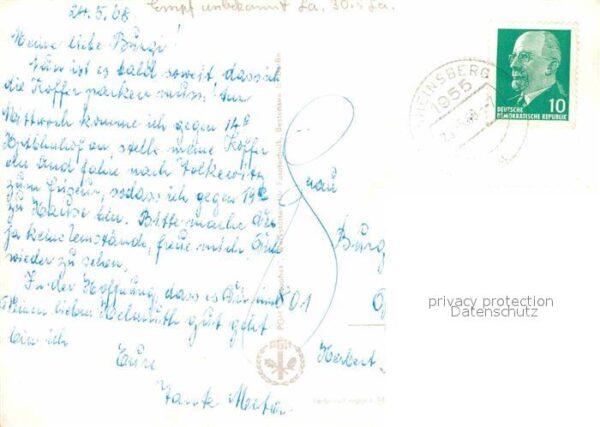 24.5.68
Empf unbekannt
Meine liebe Burgi!
Nun ist es bald soweit dass ich
die Koffer packen muss! Am
Mittwoch komme ich gegen 14
an, stelle meine Koffer
ein und fahre nach Tolkewitz
zum Friseur, sodass ich gegen 19
zu Hause bin. Bitte mache Dir
ja keine Umstände, freue mich, Euch
wieder zu sehen.
In der Hoffnung, dass es Dir und
Deinem lieben Helmuth gut geht
bin ich
Eure
Tante
Frau
Burg
801
Herbert
RHEINSBERG
1955
DEUTSCHE
DEMOKRATISCHE REPUBLIK
10
privacy protection
Datenschutz